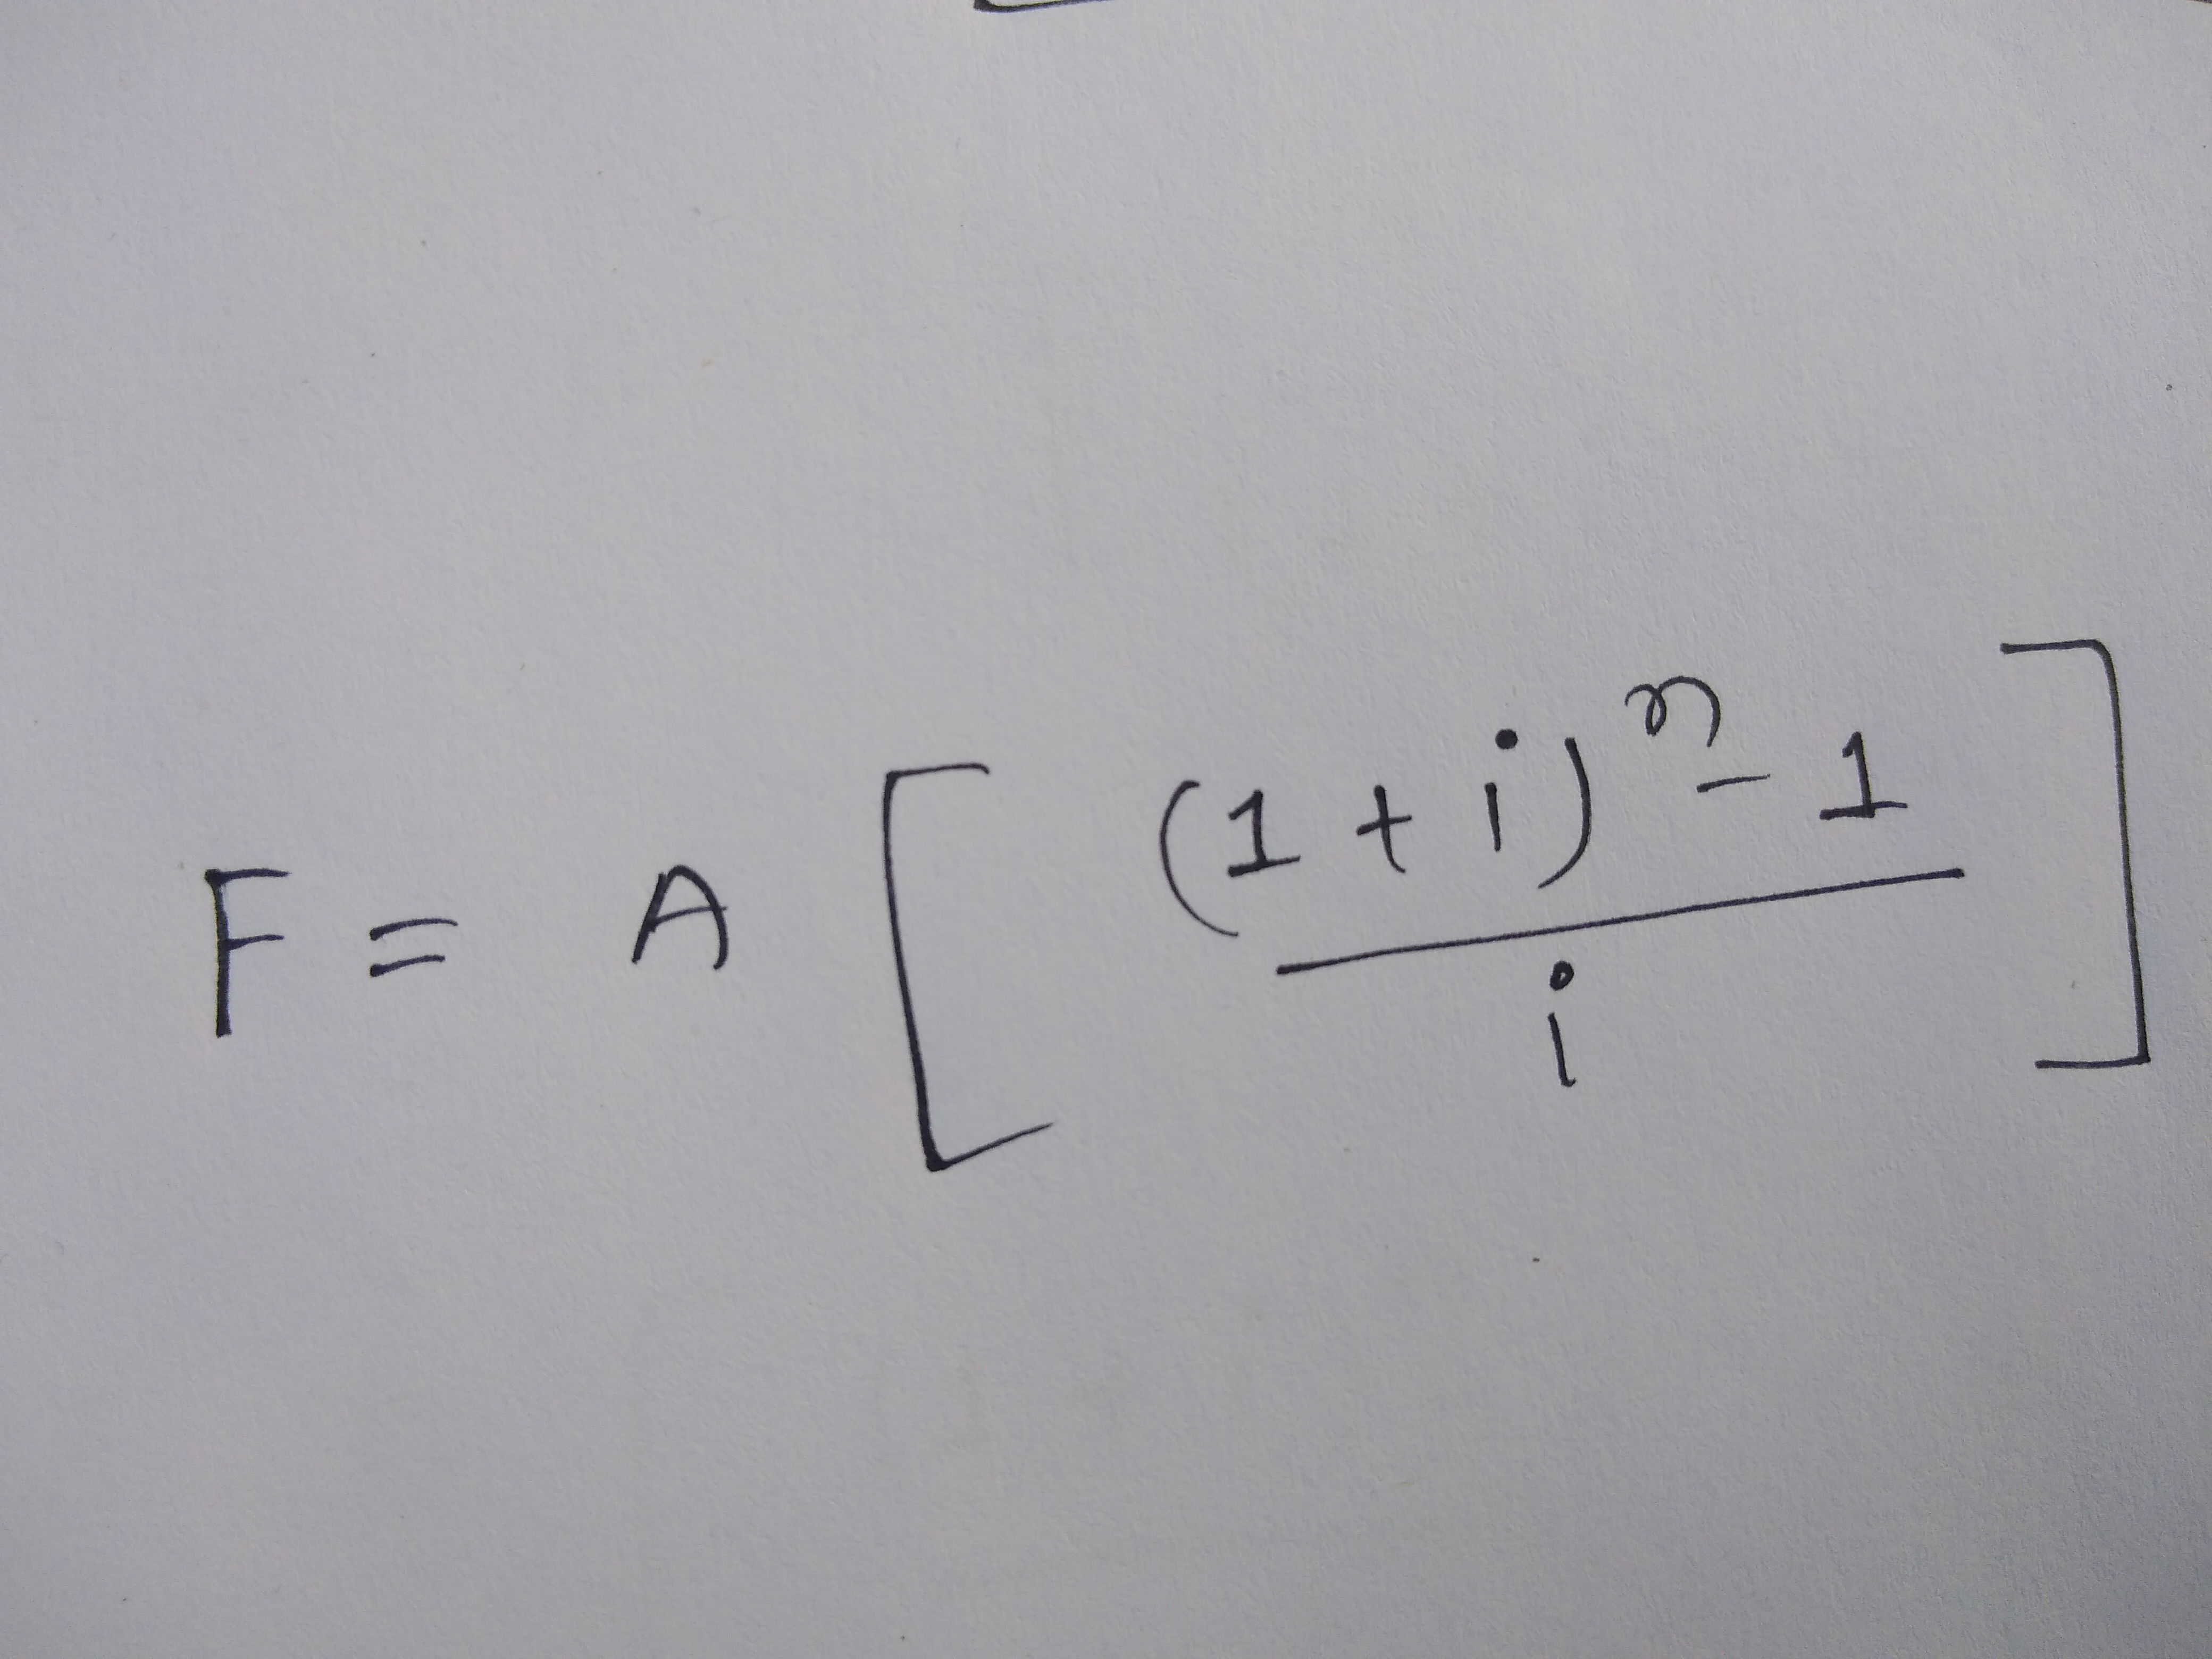 F = A [ (1 + i)^n - 1 / i ]